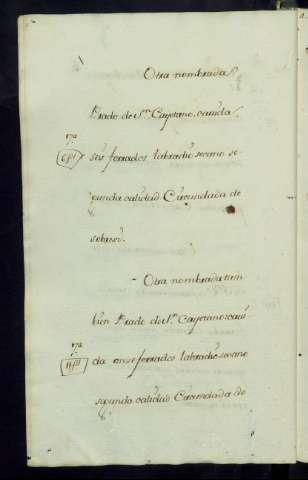 Otra nombrada
Prado de Sn. Cayetano, cavida
seis ferrados labradio secano se-
gunda calidad Circundada de
sobresi.
- Otra nombrada tam
bien Prado de Sn. Cayetano cavi
da once ferrados labradio secano
segunda calidad Circundada de